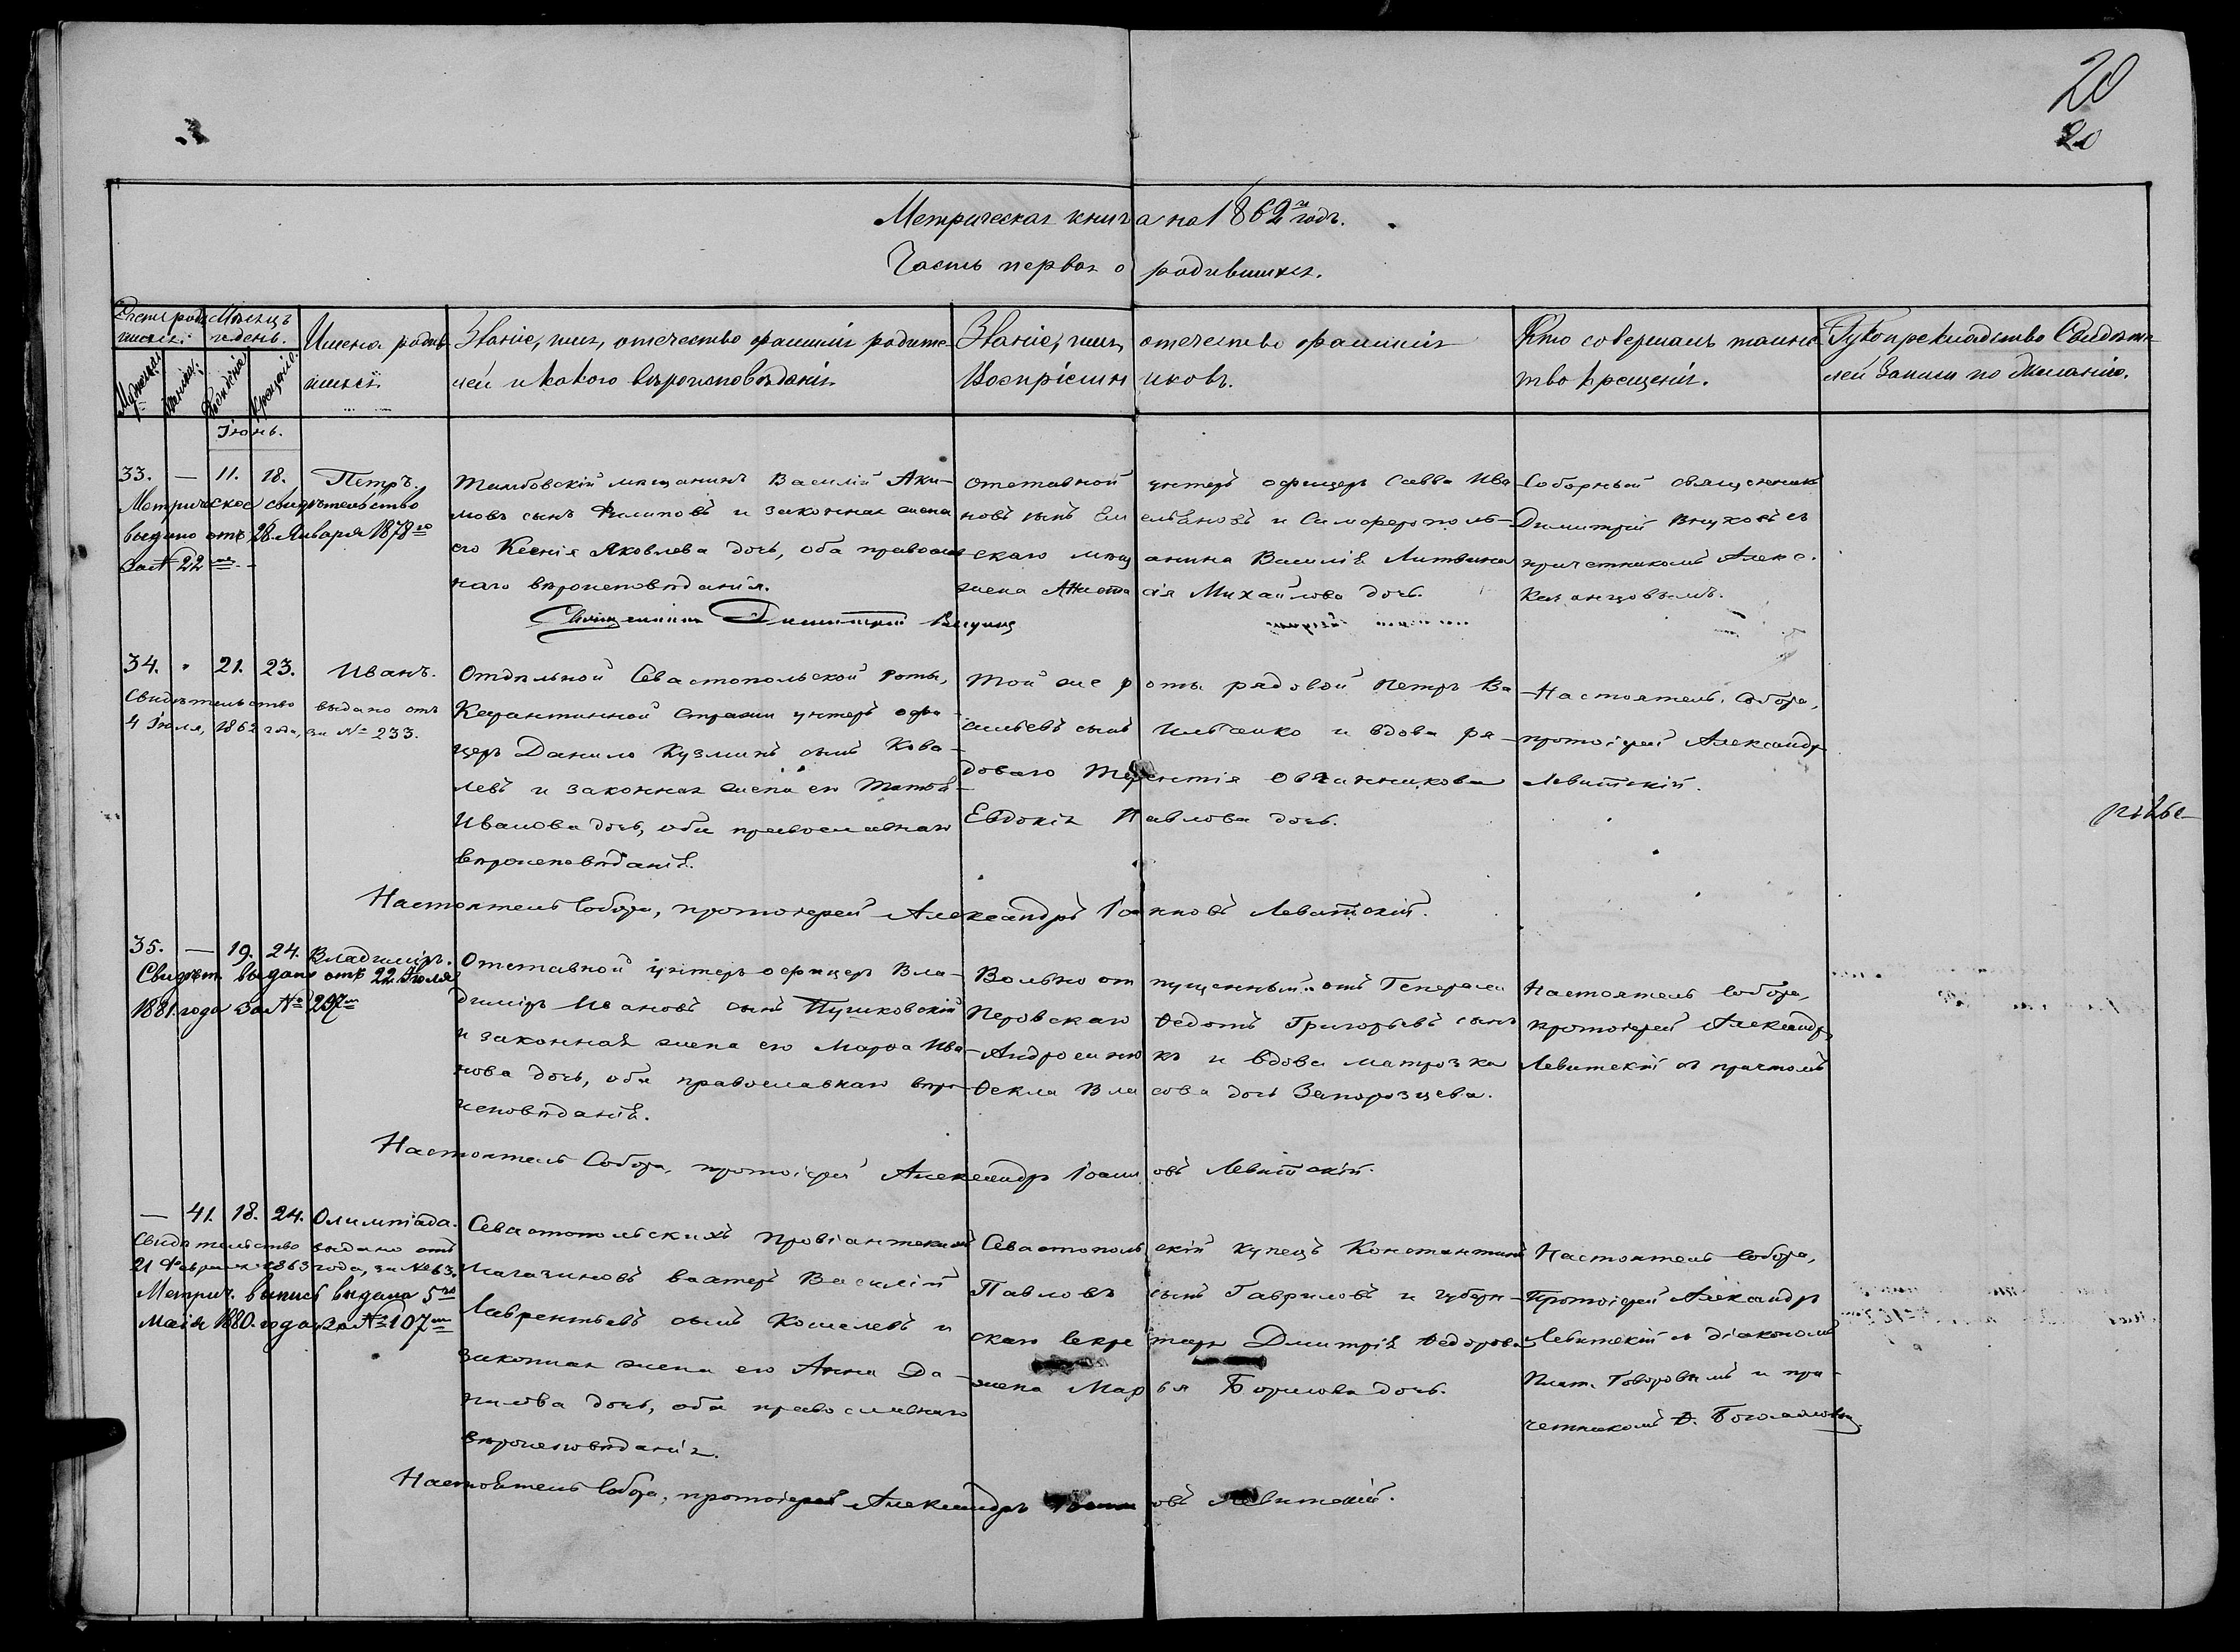 20
20
Метрическая книга на 1862й годъ.
Часть первая о родившихся.
Счетъ роди
вшихся
Мѣсяцъ
и день.
Мужеска
женска
Рожденія
Крещенія
Имена роди
вшихся
Званіе, имя, отечество фамилія родите
лей и какого вѣроисповѣданія.
Званіе, имя, отечество фамилія
Воспріемниковъ.
Кто совершалъ таинс
тво крещенія.
Рукоприкладство Свидѣте
лей Записи по желанію.
Іюнь.
33. — 11. 18. Петръ.
Метрическое свидѣтельство
выдано отъ 28 Января 1878го
за № 22мъ
Тамбовскій мѣщанинъ Василій Аки-
мовъ сынъ Филиповъ и законная жена
его Ксенія Яковлева дочь, оба православ
наго вѣроисповѣданія.
Отставной унтеръ офицеръ Савва Ива
новъ сынъ Емельяновъ и Симферополь-
скаго мѣщанина Василія Литвина
жена Анастасія Михайлова дочь.
Соборный священникъ
Димитрій Внуковъ съ
причетникомъ Алекс.
Казанцовымъ.
Священникъ Димитрий Внуковъ
34. " 21. 23. Иванъ.
Свидѣтельство выдано отъ
4 Іюля, 1862 года, за № 233.
Отдѣльной Севастопольской роты,
Карантинной Стражи унтеръ офи-
церъ Данило Кузминъ сынъ Кова-
левъ и законная жена его
Иванова дочь, оба православнаго
вѣроисповѣданія.
Той же роты рядовой Петръ Ва
сильевъ сынъ Ильченко и вдова ря-
доваго Терентія Овчинникова
Евдокія Павлова дочь.
Настоятель Собора,
протоіерей Александръ
Левитскій.
Настоятель Собора, протоіерей Александръ Іоанновъ Левитскій.
35. — 19. 24. Владиміръ.
Свидѣт. выдано отъ 22 Іюля
1881 года за № 297мъ
Отставной унтеръ офицеръ Вла-
диміръ Ивановъ сынъ Пушковскій
и законная жена его Марѳа Ива-
нова дочь, оба православнаго вѣро-
исповѣданія.
Вольно отпущенный отъ Генерала
Перовскаго Ѳедотъ Григорьевъ сынъ
Андросенко и вдова матроз ка
Ѳекла Власова дочь Запорозцева.
Настоятель Собора,
протоіерей Александръ
Левитскій съ причтомъ
Настоятель Собора, протоіерей Александръ Іоанновъ Левитскій.
— 41. 18. 24. Олимпіада.
Свидѣтельство выдано отъ
21 Февраля 1863 года, за № 63.
Метрич. выпись выдана 5го
Маія 1880. года за № 107мъ
Севастопольскихъ Провіантскихъ
магазиновъ вахтеръ Василій
Лаврентьевъ сынъ Кошелевъ и
законная жена его Анна Да-
нилова дочь, оба православнаго
вѣроисповѣданія.
Севастопольскій купецъ Константинъ
Павловъ сынъ Гавриловъ и губерн-
скаго секретаря Дмитрія Ѳедорова
жена Марья Борисова дочь.
Настоятель Собора,
Протоіерей Александръ
Левитскій съ діакономъ
Плат. Говоровымъ и при-
четникомъ Ѳ.
Настоятель Собора, протоіерей Александръ Іоанновъ Левитскій.